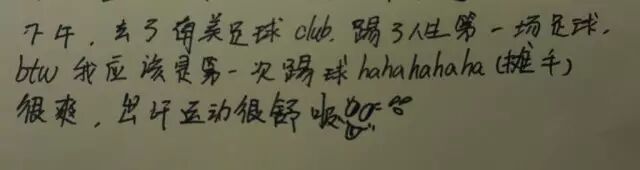 下午，去了南美足球club. 踢了人生第一场足球.
btw 我应该是第一次踢球hahahahaha (摊手)
很爽，出汗运动很舒服